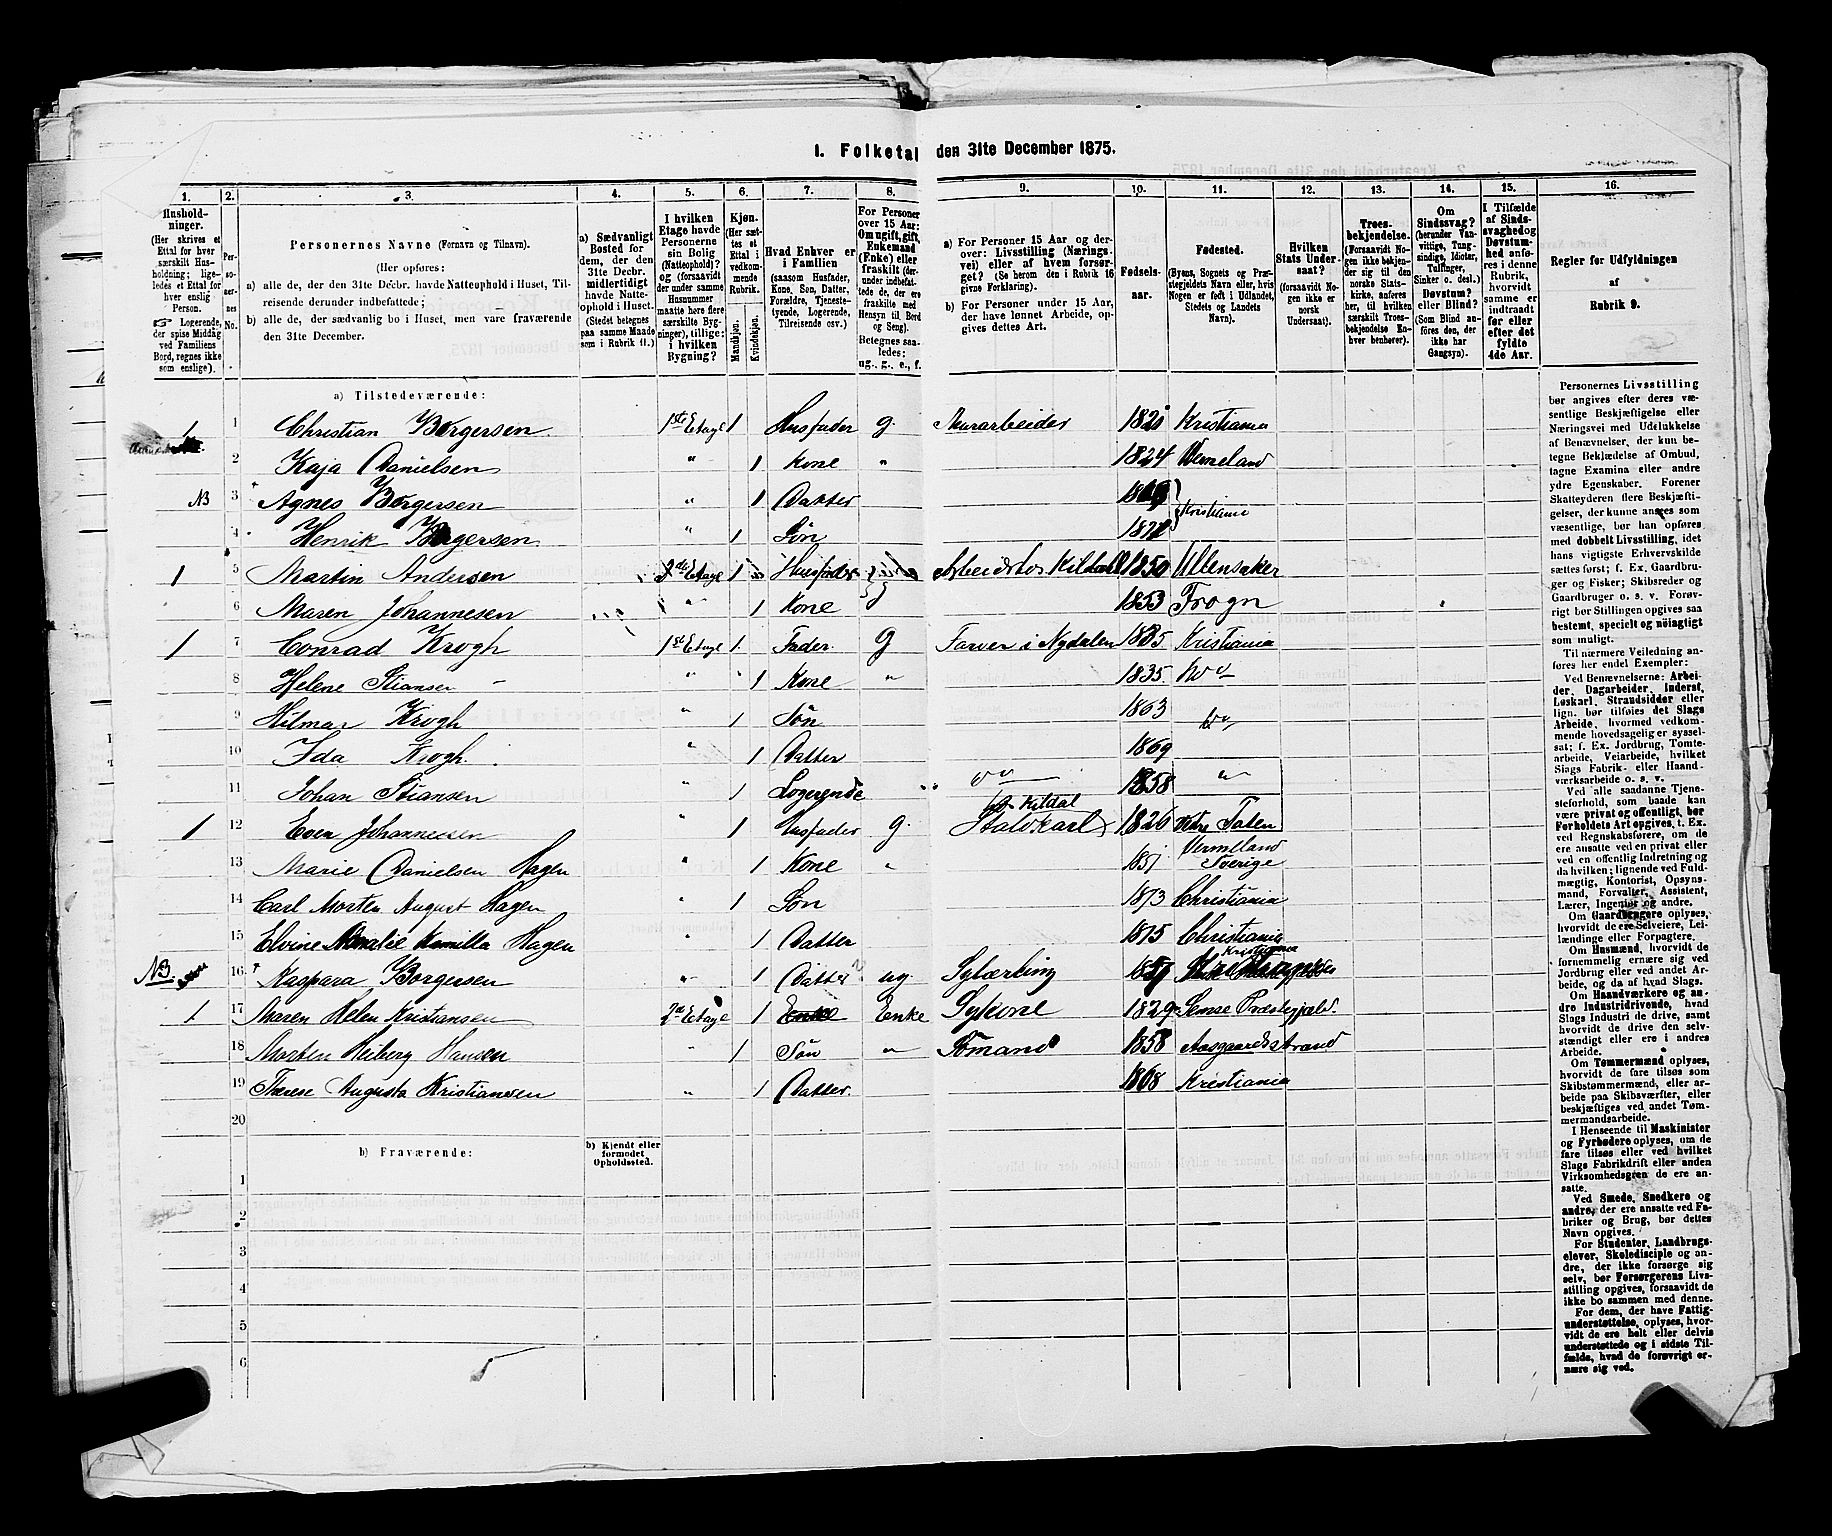 1. Folketal den 31te December 1875.
1. 2. 3. 4. 5. 6. 7. 8. 9. 10. 11. 12. 13. 14. 15. 16.
Husholdninger. (Her skrives et Ettal for hver særskilt Husholdning; ligeledes et Ettal for hver enslig Person. ☞ Logerende, der spise Middag ved Familiens Bord, regnes ikke som enslige).
Personernes No.
Personernes Navne (Fornavn og Tilnavn).
(Her opføres:
a) alle de, der den 31te Decbr. havde Natteophold i Huset, Tilreisende derunder indbefattede;
b) alle de, der sædvanlig bo i Huset, men vare fraværende den 31te December.
a) Sædvanligt Bosted for dem, der den 31te Decbr. midlertidigt havde Natteophold i Huset. (Stedet betegnes paa samme Maade som i Rubrik 11.)
I hvilken Etage havde Personerne sin Bolig (Natteophold)? og (forsaavidt der under samme Husnummer maatte høre flere særskilte Bygninger), tillige: i hvilken Bygning?
Kjøn. (Her sættes et Ettal i vedkommende Rubrik. Mandkjøn. Kvindekjøn.
Hvad Enhver er i Familien (saasom Husfader, Kone, Søn, Datter, Forældre, Tjenestetyende, Logerende, Tilreisende osv.)
For Personer over 15 Aar: Om ugift, gift, Enkemand (Enke) eller fraskilt (derunder indbefattede de, der ere fraskilte med Hensyn til Bord og Seng). Betegnes saaledes: ug., g., e., f.
a) For Personer 15 Aar og derover: Livsstilling (Næringsvei) eller af hvem forsørget? (Se herom den i Rubrik 16 givne Forklaring).
b) For Personer under 15 Aar, der have lønnet Arbeide, opgives dettes Art.
Fødselsaar.
Fødested. (Byens, Sognets og Præstegjeldets Navn eller, hvis Nogen er født i Udlandet, Stedets og Landets Navn).
Hvilken Stats Undersaat? (forsaavidt Nogen ikke er norsk Undersaat).
Troesbekjendelse. (Forsaavidt Nogen ikke bekjender sig til den norske Statskirke, anføres her, til hvilken særskilt Troesbekjendelse Enhver henhører).
Om Sindssvag? (herunder Vanvittige, Tungsindige, Idioter, Tullinger, Sinker o. desl.) Døvstum? eller Blind? (Som Blind anføres den, der ikke har Gangsyn).
I Tilfælde af Sindssvaghed og Døvstumhed anføres i denne Rubrik, hvorvidt samme er indtraadt før eller efter det fyldte 4de Aar.
Regler for Udfyldningen af Rubrik 9.
a) Tilstedeværende:
1 1 Christian Borgersen. 1ste Etage 1 Husfader g. Murarbeider Kristiania
2 Kaja Danielsen " 1 Kone " 1824
NB 3 Agnes Borgersen " 1 Datter Kristiania
4 Henrik Borgersen. " 1 Søn
1 5 Martin Andersen Etage 1 Husfader 1850 Ullensaker
6 Maren Johannesen " 1 Kone g 1853 Frogn
1 7 Conrad Krogh 1ste Etage 1. Fader. g Farver i Nydalen 1835. Kristiania
8 Helene Stiansen " 1 Kone " 1835.
9 Hilmar Krogh " 1 Søn 1863
10 Ida Krogh. " 1 Datter 1869
11 Johan Stiansen " 1 Logerende 1858 "
1 12 Even Johannesen 1 Husfader g. Kildal Staldkarl 1826
13 Marie Danielsen Hagen " 1 Kone " Vermeland Sverige
14 Carl Morten August Hagen " 1 Søn 1873 Christiania
15 Elvine Amalie Kamilla Hagen " 1 Datter 1875 Christiania
NB. 16. Kaspara Borgersen " 1 Datter ug Sylærling Kristiania
1 17 Maren Helen Kristiansen 2den Etage 1 Enke Enke Sykone 1829 Præstegjæld.
18 Morten Heiberg Hansen " 1 Søn " Sømand 1858 Aasgaardsstrand
19 Therese Augusta Kristiansen " 1 Datter. 1868 Kristiania
20
b) Fraværende: b) Kjendt eller formodet Opholdssted.
1
2
3
4
5
6
Personernes Livsstilling bør angives efter deres væsentlige Beskjæftigelse eller Næringsvei med Udelukkelse af Benævnelser, der kun betegne Beklædelse af Ombud, tagne Examina eller andre ydre Egenskaber. Forener Skatteyderen flere Beskjæftigelser, der kunne ansees som væsentlige, bør han opføres med dobbelt Livsstilling, idet hans vigtigste Erhvervskilde sættes først; f. Ex. Gaardbruger og Fisker; Skibsreder og Gaardbruger o. s. v. Forøvrigt bør Stillingen opgives saa bestemt, specielt og nøiagtigt som muligt.
Til nærmere Veiledning anføres her endel Exempler:
Ved Benævnelserne: Arbeider, Dagarbeider, Inderst, Løskarl, Strandsidder eller lign. bør tilføies det Slags Arbeide, hvormed vedkommende hovedsagelig er sysselsat; f. Ex. Jordbrug, Tomtearbeide, Veiarbeide, hvilket Slags Fabrik- eller Haandværksarbeide o. s. v.
Ved alle saadanne Tjenesteforhold, som baade kan være privat og offentligt, bør Forholdets Art opgives, t. Ex. ved Regnskabsførere, om de ere ansatte ved en privat eller ved en offentlig Indretning og da hvilken; lignende ved Fuldmægtig, Kontorist, Opsynsmand, Forvalter, Assistent, Lærer, Ingeniør og andre.
Om Gaardbrugere oplyses, hvorvidt de ere Selveiere, Leilændinge eller Forpagtere.
Om Husmænd, hvorvidt de fornemmelig ernære sig ved Jordbrug eller ved andet Arbeide, og da af hvad Slags.
Om Haandværkere og andre Industridrivende, hvad Slags Industri de drive, samt hvorvidt de drive den selvstændigt eller ere i andres Arbeide.
Om Tømmermænd oplyses, hvorvidt de fare tilsøs som Skibstømmermænd, eller arbeide paa Skibsværfter, eller beskjæftiges ved andet Tømmermandsarbeide.
I Henseende til Maskinister og Fyrbødere oplyses, om de fare tilsøs eller ved hvilket Slags Fabrikdrift eller anden Virksomhedsgren de ere ansatte.
Ved Smede, Snedkere og andre, der ere ansatte ved Fabriker og Brug, bør dettes Navn opgives.
For Studenter, Landbrugselever, Skoledisciple og andre, der ikke forsørge sig selv, bør Forsørgerens Livsstilling opgives, forsaavidt de ikke bo sammen med denne.
For dem, der have Fattigunderstøttelse, oplyses, hvorvidt de ere helt eller delvis understøttede og i sidste Tilfælde, hvad de forøvrigt ernære sig ved.